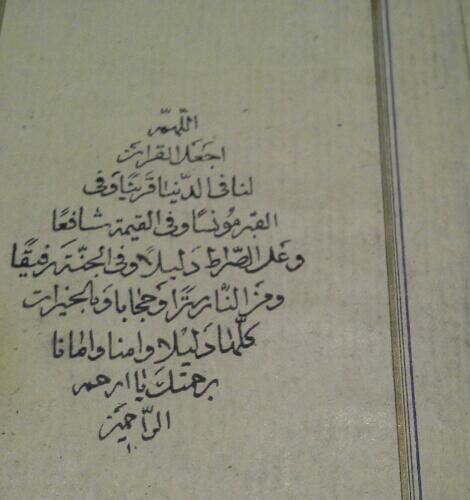 اللهم
اجعل القرآن
لنا فى الدنيا قرينا وفى
القبر مونسا وفى القيمة شافعا
وعلى الصراط دليلا وفى الجنة رفيقا
ومن النار سترا وحجابا وبالخيرات
كلها دليلا وامنا وامانا
برحمتك يا ارحم
الراحمين